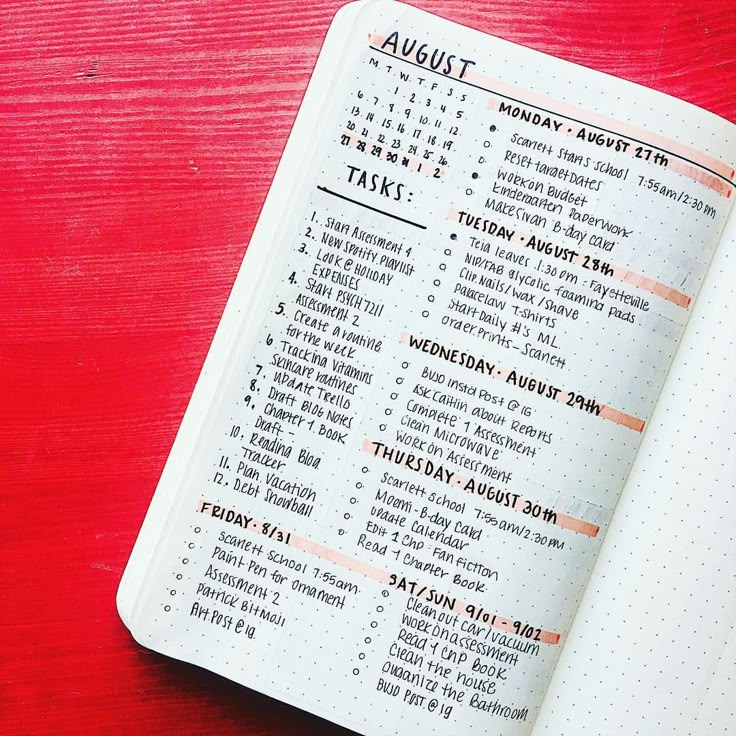 AUGUST
M. T. W. T. F. S. S.
1. 2. 3. 4. 5
6. 7. 8. 9. 10. 11. 12
13. 14. 15. 16. 17. 18. 19
20. 21. 22. 23. 24. 25. 26
27. 28. 29. 30. 31. 1. 2
TASKS:
1. Start Assessment 4
2. New Spotify Playlist
3. LOOK @ HOLIDAY
EXPENSES
4. Start PSYCH 7211
Assessment 2
5. Create a routine
for the week
6. Tracking Vitamins
7. Skincare routines
8. Update Trello
9. Draft Blog Notes
Chapter 1 Book
Draft -
10. Reading Blog
Tracker
11. Plan Vacation
12. Debt Snowball
MONDAY · AUGUST 27th
Scarlett Starts School 7:55am/2:30 pm
Reset target Dates
Work on Budget
Kindergarten Paperwork
Make Sivan B-day card
TUESDAY · AUGUST 28th
Teia leaves 1:30 pm : Fayetteville
NIP/FAB Glycolic foaming pads
Clip Nails/wax/shave
paracelaw T-shirts
Start Daily #'s ML
order Prints - Scarlett
WEDNESDAY · AUGUST 29th
BUJO insta Post @ IG
Ask Caitlin about Reports
Complete 1 Assessment
Clean Microwave
Work on Assessment
THURSDAY · AUGUST 30th
Scarlett School 7:55am/2:30pm
Moemi - B-day card
update Calendar
Edit 1 Chp : Fanfiction
Read 1 Chapter Book
FRIDAY · 8/31
Scarlett School 7:55am
Paint-Pen for ornament
Assessment 2
Patrick Bitmoji
Art Post @ ig
SAT/SUN 9/01 - 9/02
Clean out car/vacuum
Work on assessment
Read 1 Chp Book
Clean the house
organize the Bathroom
BUJO POST @ IG